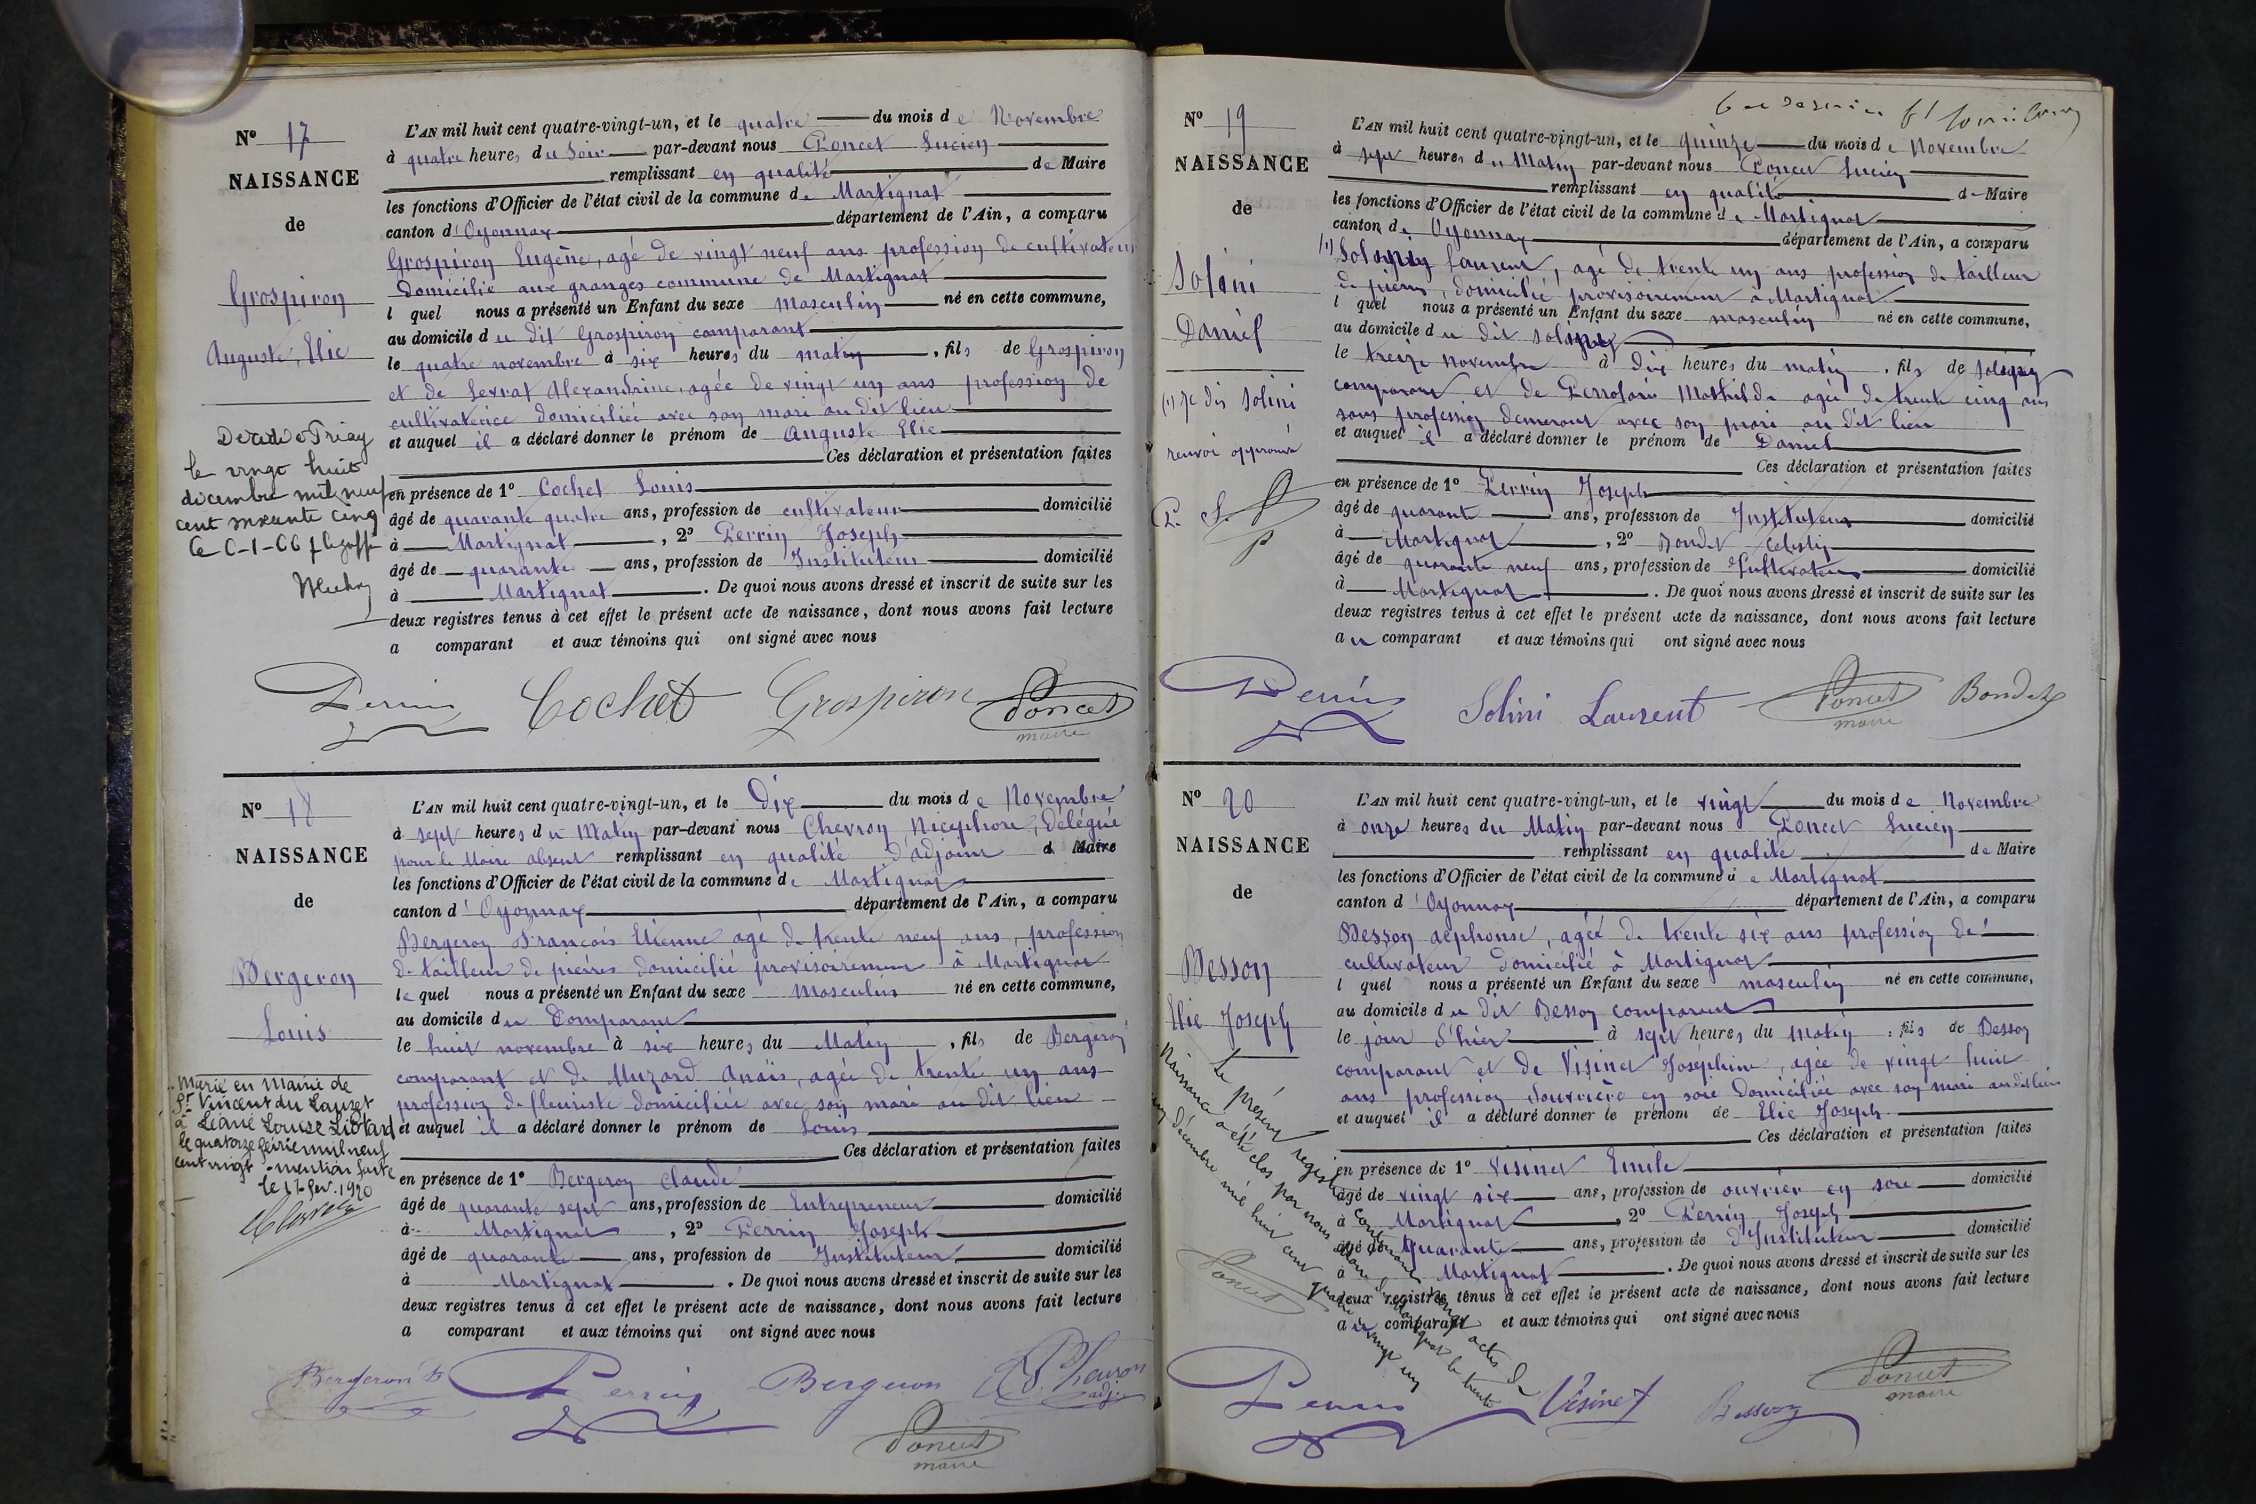 N° 17
NAISSANCE
de
Grospiron
Auguste, Elie
Décédé à Priay
le vingt huit
décembre mil neuf
cent soixante cinq
L'AN mil huit cent quatre-vingt-un, et le quatre du mois de Novembre
à quatre heures du Soir par-devant nous Poncet Lucien
remplissant en qualité de Maire
les fonctions d'Officier de l'état civil de la commune de Martignat
canton d'Oyonnax département de l'Ain, a comparu
Grospiron Eugène, agé de vingt neuf ans profession de cultivateur
Domicilié aux granges commune de Martignat
l quel nous a présenté un Enfant du sexe masculin né en cette commune,
au domicile du dit Grospiron comparant
le quatre novembre à six heures du matin, fils de Grospiron
et de Levrat Alexandrine, agée de vingt un ans profession de
cultivatrice domiciliée avec son mari au dit lieu
et auquel il a déclaré donner le prénom de Auguste Elie
Ces déclaration et présentation faites
en présence de 1° Cochet Louis
âgé de quarante quatre ans, profession de cultivateur domicilié
à Martignat, 2° Perrin Joseph
âgé de quarante ans, profession de Instituteur domicilié
à Martignat. De quoi nous avons dressé et inscrit de suite sur les
deux registres tenus à cet effet le présent acte de naissance, dont nous avons fait lecture
a comparant et aux témoins qui ont signé avec nous
Perrin Cochet Grospiron Poncet
maire
N° 18
NAISSANCE
de
Bergeron
Louis
Marié en Mairie de
St Vincent du Lauzet
à Léanie Louise Liotard
le quatorze février mil neuf
cent vingt. mention faite
le 17 fev. 1920
L'AN mil huit cent quatre-vingt-un, et le Dix du mois de Novembre
à sept heures du Matin par-devant nous Chevron Nicéphore, délégué
pour le Maire absent remplissant en qualité d'adjoint d Maire
les fonctions d'Officier de l'état civil de la commune de Martignat
canton d'Oyonnax département de l'Ain, a comparu
Bergeron François Etienne agé de trente neuf ans, profession
de tailleur de pierres domicilié provisoirement à Martignat
le quel nous a présenté un Enfant du sexe Masculin né en cette commune,
au domicile du Comparant
le huit novembre à six heures du Matin, fils de Bergeron
comparant et de Muzard Anaïs, agée de trente un ans
profession de fleuriste domiciliée avec son mari au dit lieu
et auquel il a déclaré donner le prénom de Louis
Ces déclaration et présentation faites
en présence de 1° Bergeron Claude
âgé de quarante sept ans, profession de Entrepreneur domicilié
à Martignat, 2° Perrin Joseph
âgé de quarante ans, profession de Instituteur domicilié
à Martignat. De quoi nous avons dressé et inscrit de suite sur les
deux registres tenus à cet effet le présent acte de naissance, dont nous avons fait lecture
a comparant et aux témoins qui ont signé avec nous
Bergeron Perrin Bergeron Chevron
adj
Poncet
maire
N° 19
NAISSANCE
de
Solini
Daniel
(1) je dis Solini
renvoi approuvé
P. L.
L'AN mil huit cent quatre-vingt-un, et le quinze du mois de Novembre
à sept heures du Matin par-devant nous Poncet Lucien
remplissant en qualité de Maire
les fonctions d'Officier de l'état civil de la commune de Martignat
canton de Oyonnax département de l'Ain, a comparu
(1) Laurent, agé de trente un ans profession de tailleur
de pierres, domicilié provisoirement à Martignat
l quel nous a présenté un Enfant du sexe masculin né en cette commune,
au domicile du dit
le treize novembre à dix heures du matin, fils de
comparant et de Mathilde agée de trente cinq ans
sans profession demeurant avec son mari au dit lieu
et auquel il a déclaré donner le prénom de Daniel
Ces déclaration et présentation faites
en présence de 1° Perrin Joseph
âgé de quarante ans, profession de Instituteur domicilié
à Martignat, 2° Bondet Célestin
âgé de quarante neuf ans, profession de Cultivateur domicilié
à Martignat. De quoi nous avons dressé et inscrit de suite sur les
deux registres tenus à cet effet le présent acte de naissance, dont nous avons fait lecture
au comparant et aux témoins qui ont signé avec nous
Perrin Solini Laurent Poncet Bondet
maire
N° 20
NAISSANCE
de
Besson
Elie Joseph
Le présent registre contenant vingt actes de
Naissance a été clos par nous Maire de Martignat le trente
un décembre mil huit cent quatre vingt un
Poncet
L'AN mil huit cent quatre-vingt-un, et le vingt du mois de Novembre
à onze heures du Matin par-devant nous Poncet Lucien
remplissant en qualité de Maire
les fonctions d'Officier de l'état civil de la commune de Martignat
canton d'Oyonnax département de l'Ain, a comparu
Besson alphonse, agée de trente six ans profession de
cultivateur domicilié à Martignat
l quel nous a présenté un Enfant du sexe masculin né en cette commune,
au domicile du dit Besson comparant
le jour d'hier à sept heures du Matin, fils de Besson
comparant et de Visinet Joséphine, agée de vingt huit
ans profession d'ouvrière en soie Domiciliée avec son mari au dit lieu
et auquel il a déclaré donner le prénom de Elie Joseph
Ces déclaration et présentation faites
en présence de 1° Visinet Emile
âgé de vingt six ans, profession de ouvrier en soie domicilié
à Martignat, 2° Perrin Joseph
âgé de Quarante ans, profession de d'Instituteur domicilié
à Martignat. De quoi nous avons dressé et inscrit de suite sur les
deux registres tenus à cet effet le présent acte de naissance, dont nous avons fait lecture
au comparant et aux témoins qui ont signé avec nous
Perrin Visinet Besson Poncet
maire